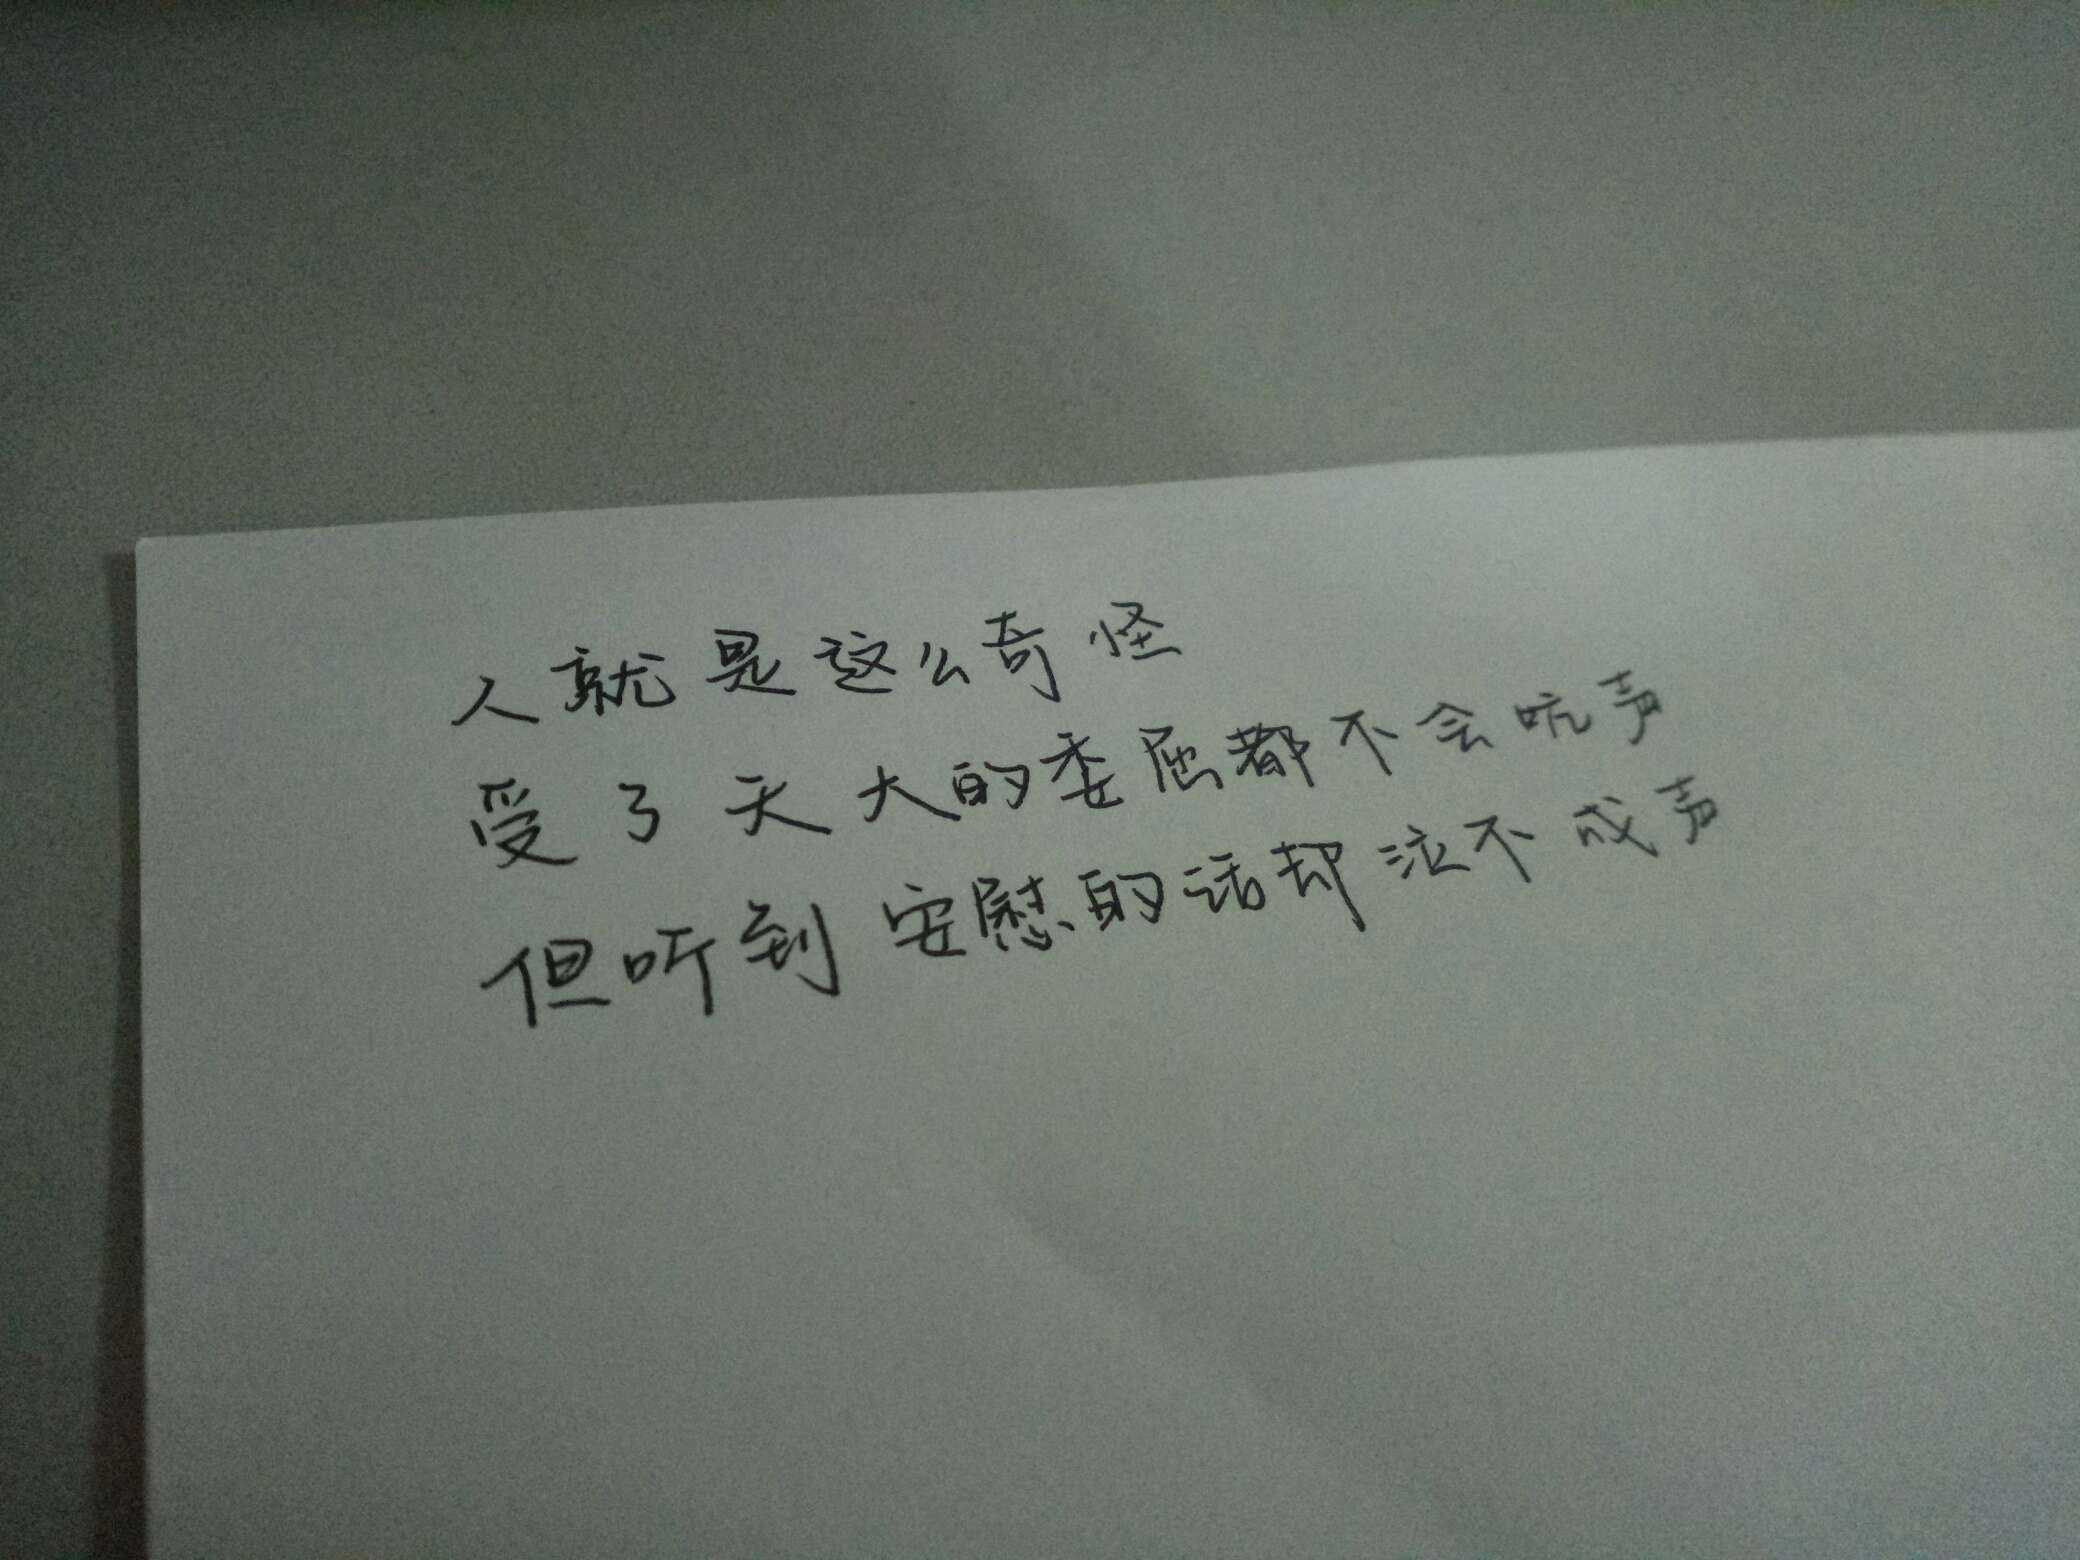 人就是这么奇怪
受了天大的委屈都不会吭声
但听到安慰的话却泣不成声